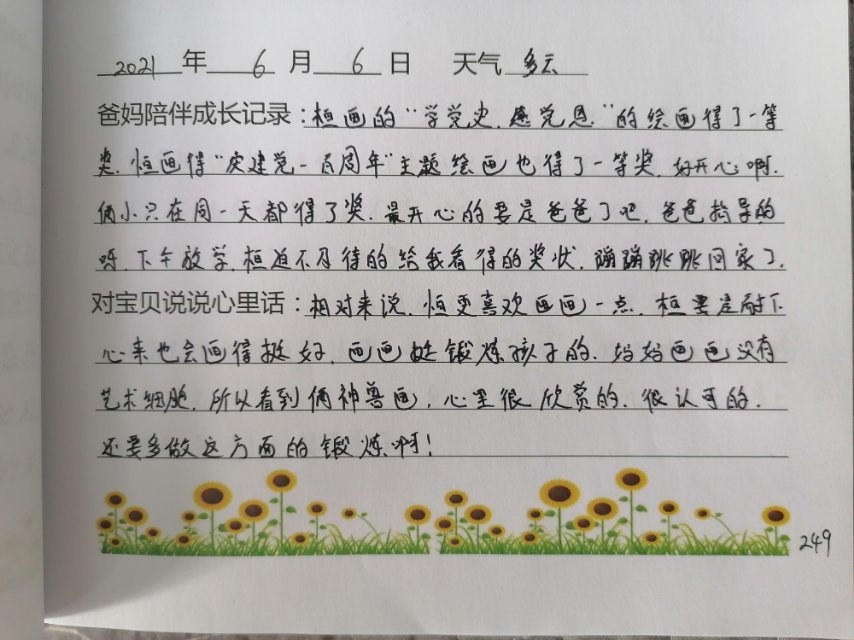 2021年6月6日 天气 多云
爸妈陪伴成长记录：桓画的“学党史.感党恩”的绘画得了一等
奖.恒画得“庆建党一百周年”主题绘画也得了一等奖.好开心啊.
俩小只在同一天都得了奖.最开心的要是爸爸了吧.爸爸指导的
呀.下午放学.桓迫不及待的给我看得的奖状.蹦蹦跳跳回家了.
对宝贝说说心里话：相对来说.恒更喜欢画画一点.桓要是耐下
心来也会画得挺好.画画挺锻炼孩子的.妈妈画画没有
艺术细胞.所以看到俩神兽画.心里很欣赏的.很认可的.
还要多做这方面的锻炼啊！
249